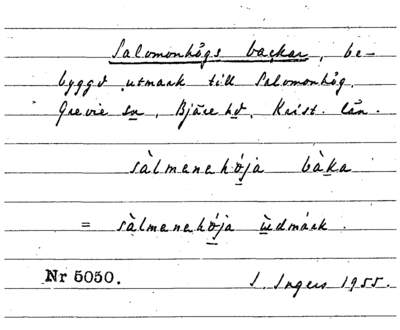 Salomonhögs backar, be-
byggd utmark till Salomonhög.
Grevie sn, Bjäre hd, Krist. län.
sàlmenehǿja bàka
= sàlmenehǿja ùdmárk.
Nr 5050. I. Ingers 1955.